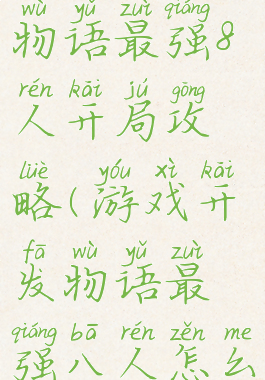 wù yǔ zuì qiáng
物语最强8
rén kāi jú gōng
人开局攻
lüè yóu xì kāi
略(游戏开
fā wù yǔ zuì
发物语最
qiáng bā rén zěn me
强八人怎么